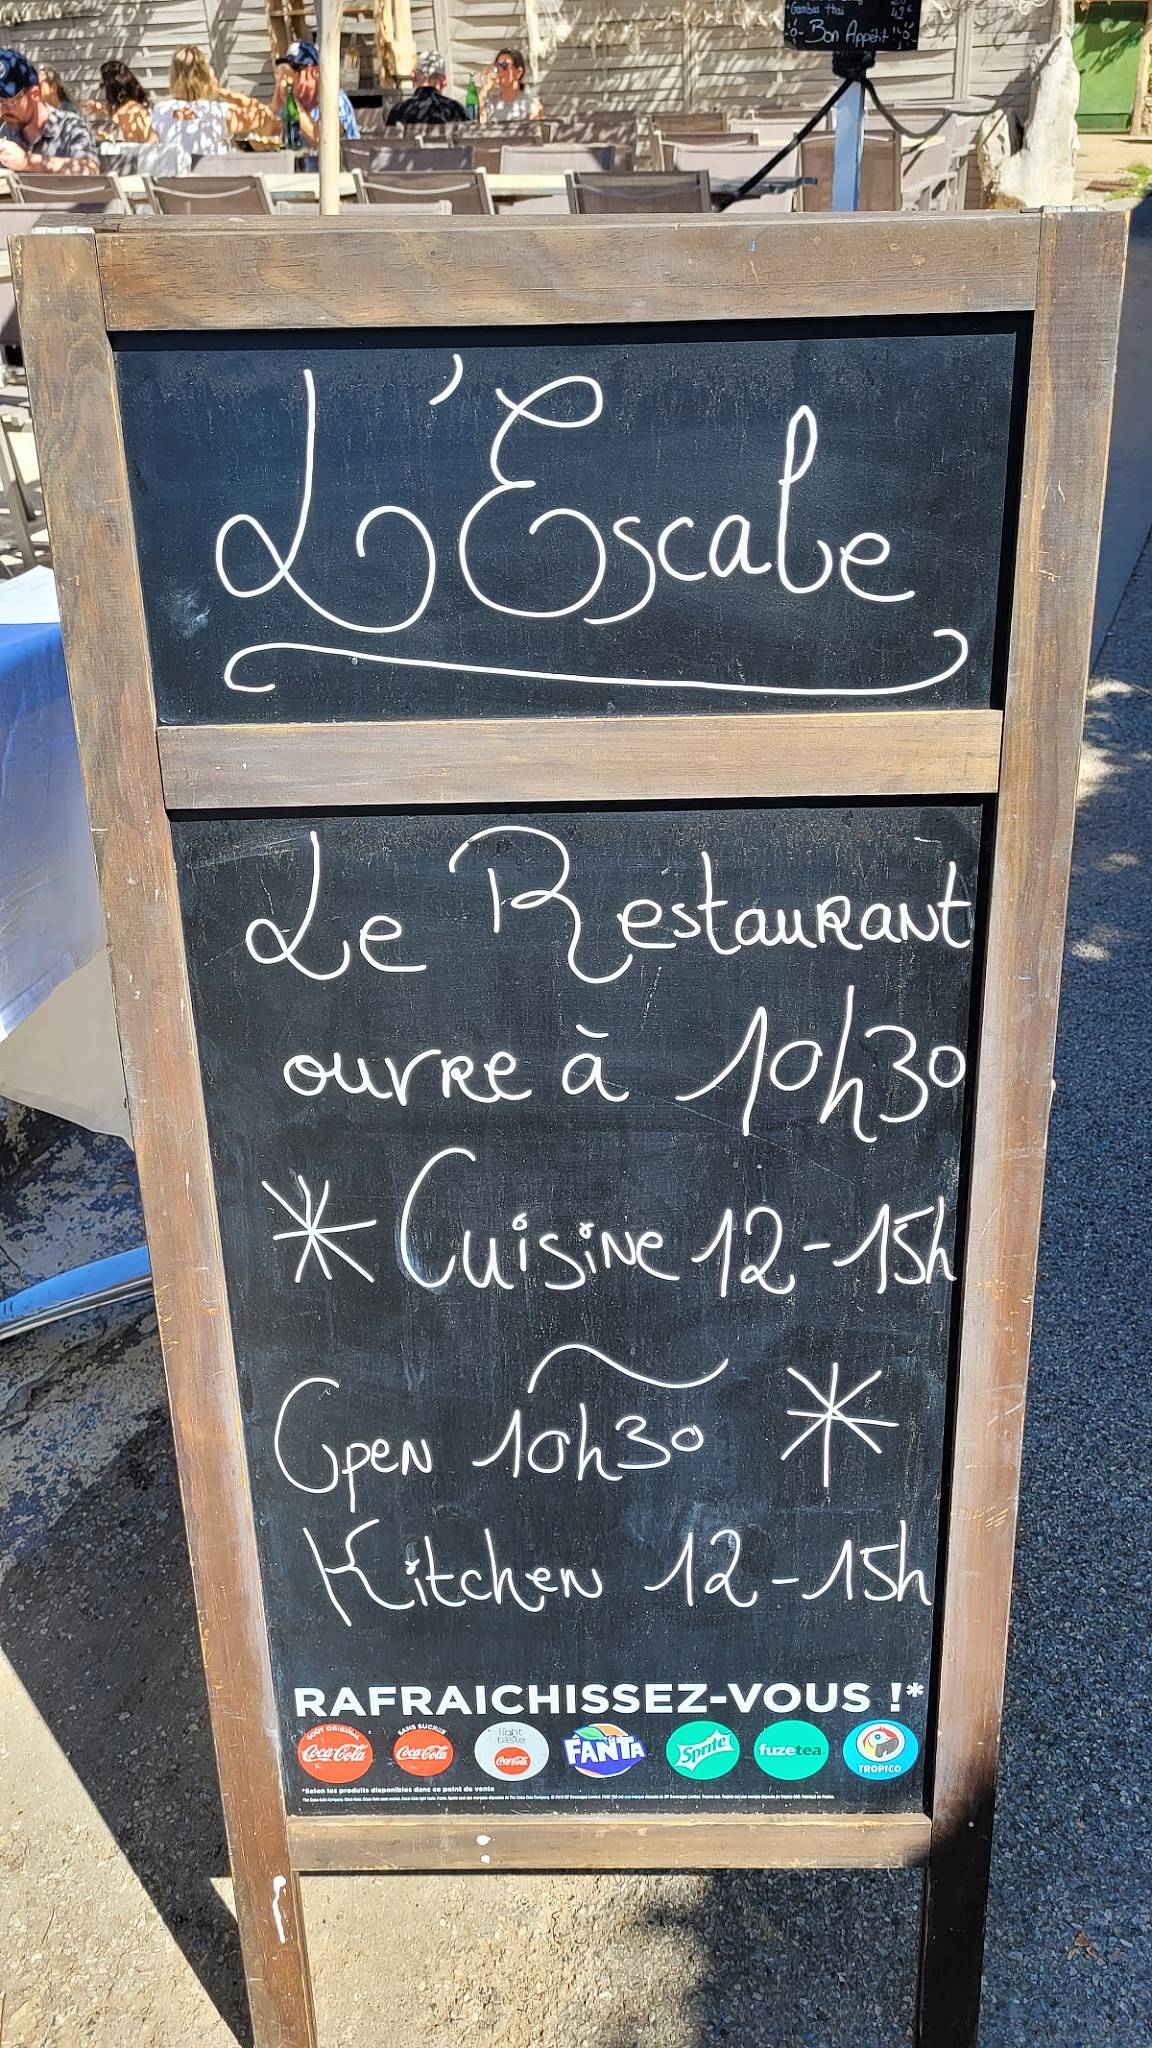 Gambas Thaï
Bon Appétit
L'Escale
Le Restaurant
ouvre à 10h30
* Cuisine 12-15h
Open 10h30 *
Kitchen 12-15h
RAFRAICHISSEZ-VOUS !*
GOÛT ORIGINAL SANS SUCRES light taste
Coca-Cola Coca-Cola Coca-Cola FANTA Sprite fuzetea TROPICO
*Selon les produits disponibles dans ce point de vente